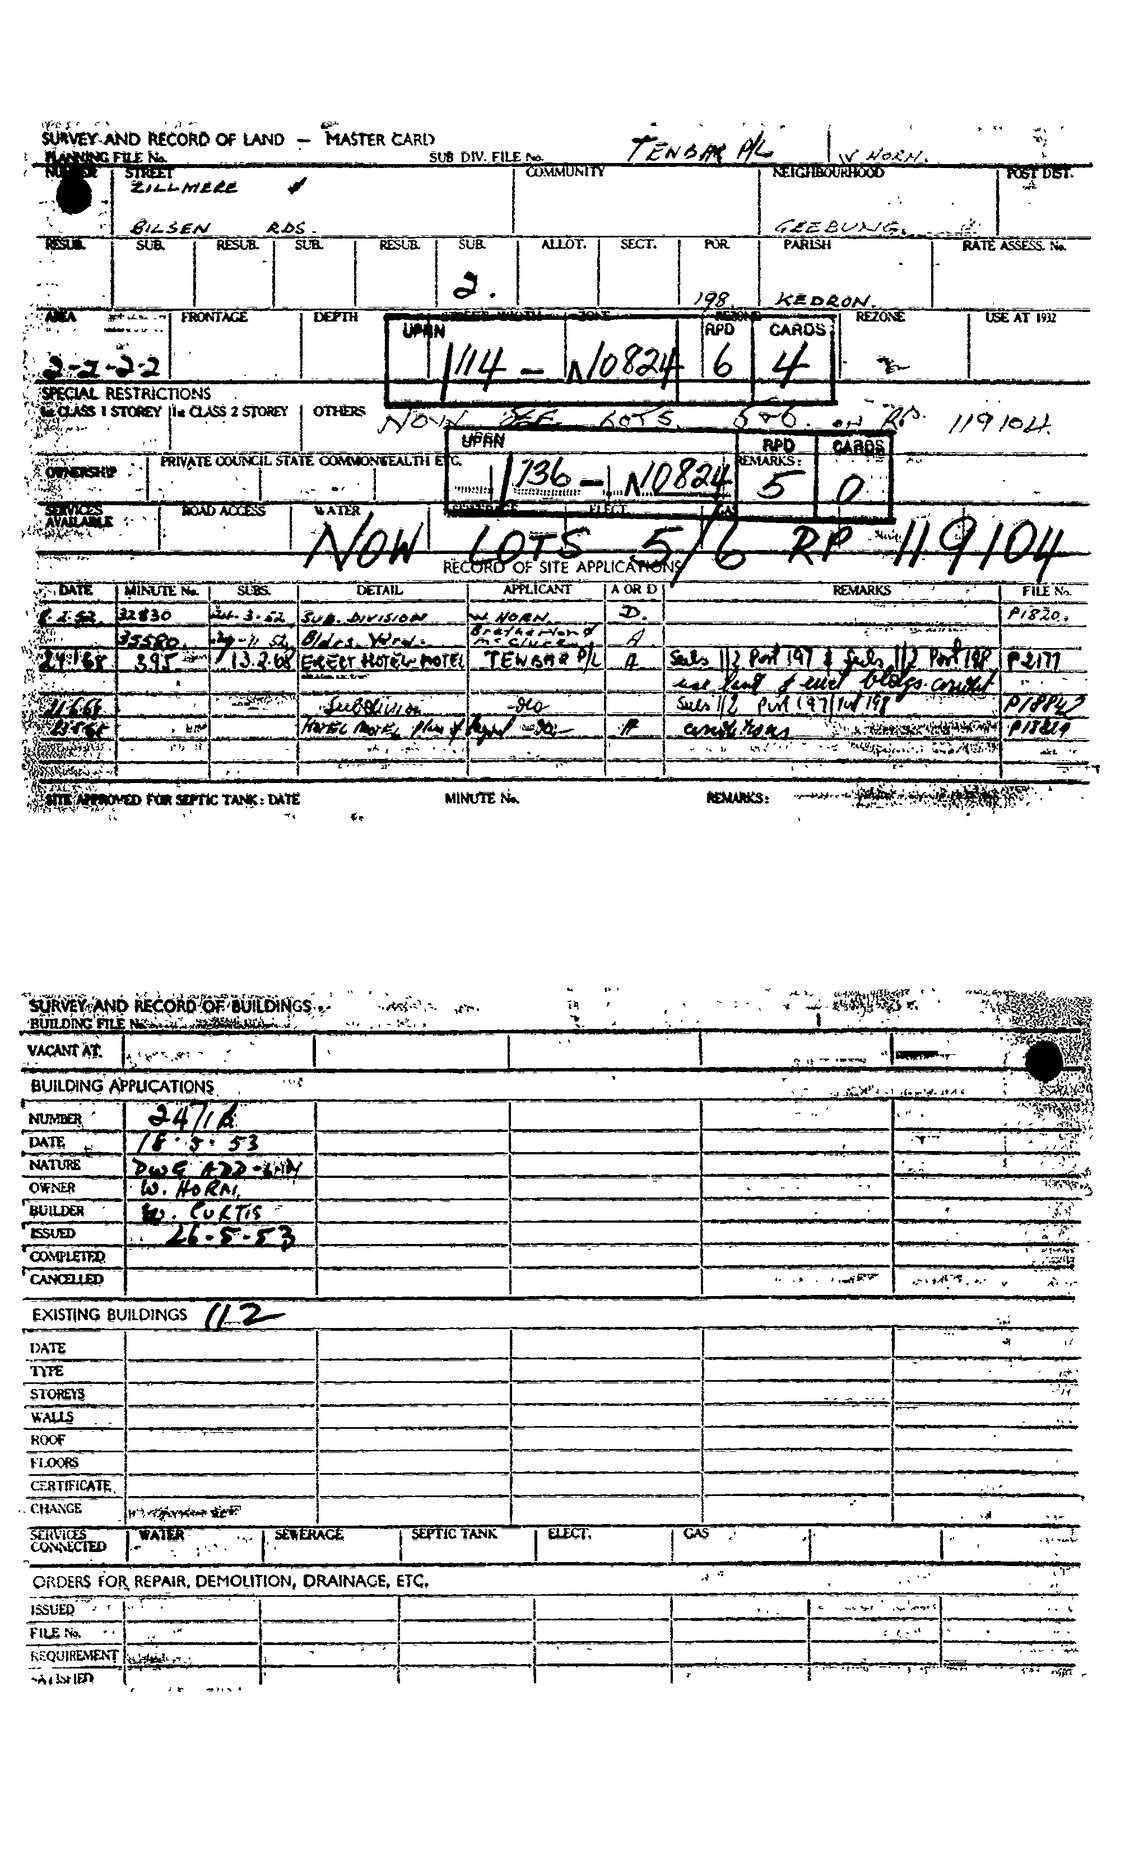 SURVEY AND RECORD OF LAND — MASTER CARD
PLANNING FILE No. SUB DIV. FILE No. TENBAR P/L W HORN.
NUMBER STREET COMMUNITY NEIGHBOURHOOD POST DIST.
ZILLMERE
BILSEN RDS. GEEBUNG.
RESUB. SUB. RESUB. SUB. RESUB. SUB. ALLOT. SECT. POR. PARISH RATE ASSESS. No.
2. 198. KEDRON.
AREA FRONTAGE DEPTH REZONE USE AT 1932
UPRN RPD CARDS
2-2-22 1114 - N10824 6 4
SPECIAL RESTRICTIONS
1a CLASS 1 STOREY 1a CLASS 2 STOREY OTHERS NOW SEE LOTS. 5&6. ON RP. 119104.
UPRN RPD CARDS
OWNERSHIP PRIVATE COUNCIL STATE COMMONWEALTH ETC. REMARKS:
1736 - N10824 5 0
SERVICES AVAILABLE ROAD ACCESS WATER ELECT. GAS
NOW LOTS 5/6 RP 119104
RECORD OF SITE APPLICATIONS
DATE MINUTE No. SUBS. DETAIL APPLICANT A OR D REMARKS FILE No.
8.2.52. 32830 24.3.52. SUB. DIVISION W. HORN. D. P1820.
35580. 29-11.52 Bldrs. Yard. A
24.1.68 395 13.2.68 ERECT HOTEL MOTEL TENBAR P/L A Subs 1/2 Port 197 & Subs 1/2 Port 198 P2177
use land & erect bldgs. condit
Subdivision do Subs 1/2 Port 197/
HOTEL MOTEL Plan of do A conditions
SITE APPROVED FOR SEPTIC TANK: DATE MINUTE No. REMARKS:
SURVEY AND RECORD OF BUILDINGS
BUILDING FILE No.
VACANT AT.
BUILDING APPLICATIONS
NUMBER
DATE 18.5.53
NATURE DWG ADD
OWNER W. HORN.
BUILDER W. CURTIS
ISSUED 26-5-53
COMPLETED
CANCELLED
EXISTING BUILDINGS 112
DATE
TYPE
STOREYS
WALLS
ROOF
FLOORS
CERTIFICATE
CHANGE
SERVICES CONNECTED WATER SEWERAGE SEPTIC TANK ELECT. GAS
ORDERS FOR REPAIR, DEMOLITION, DRAINAGE, ETC.
ISSUED
FILE No.
REQUIREMENT